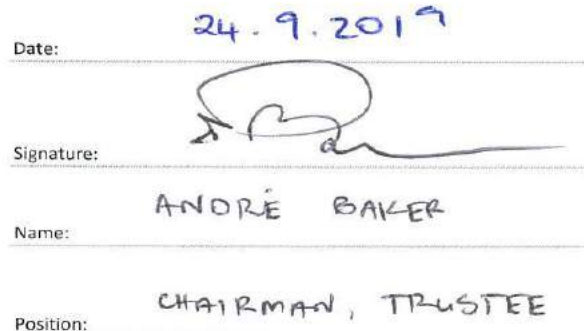 Date: 24.9.2019
Signature:
Name: ANDRÉ BAKER
Position: CHAIRMAN, TRUSTEE